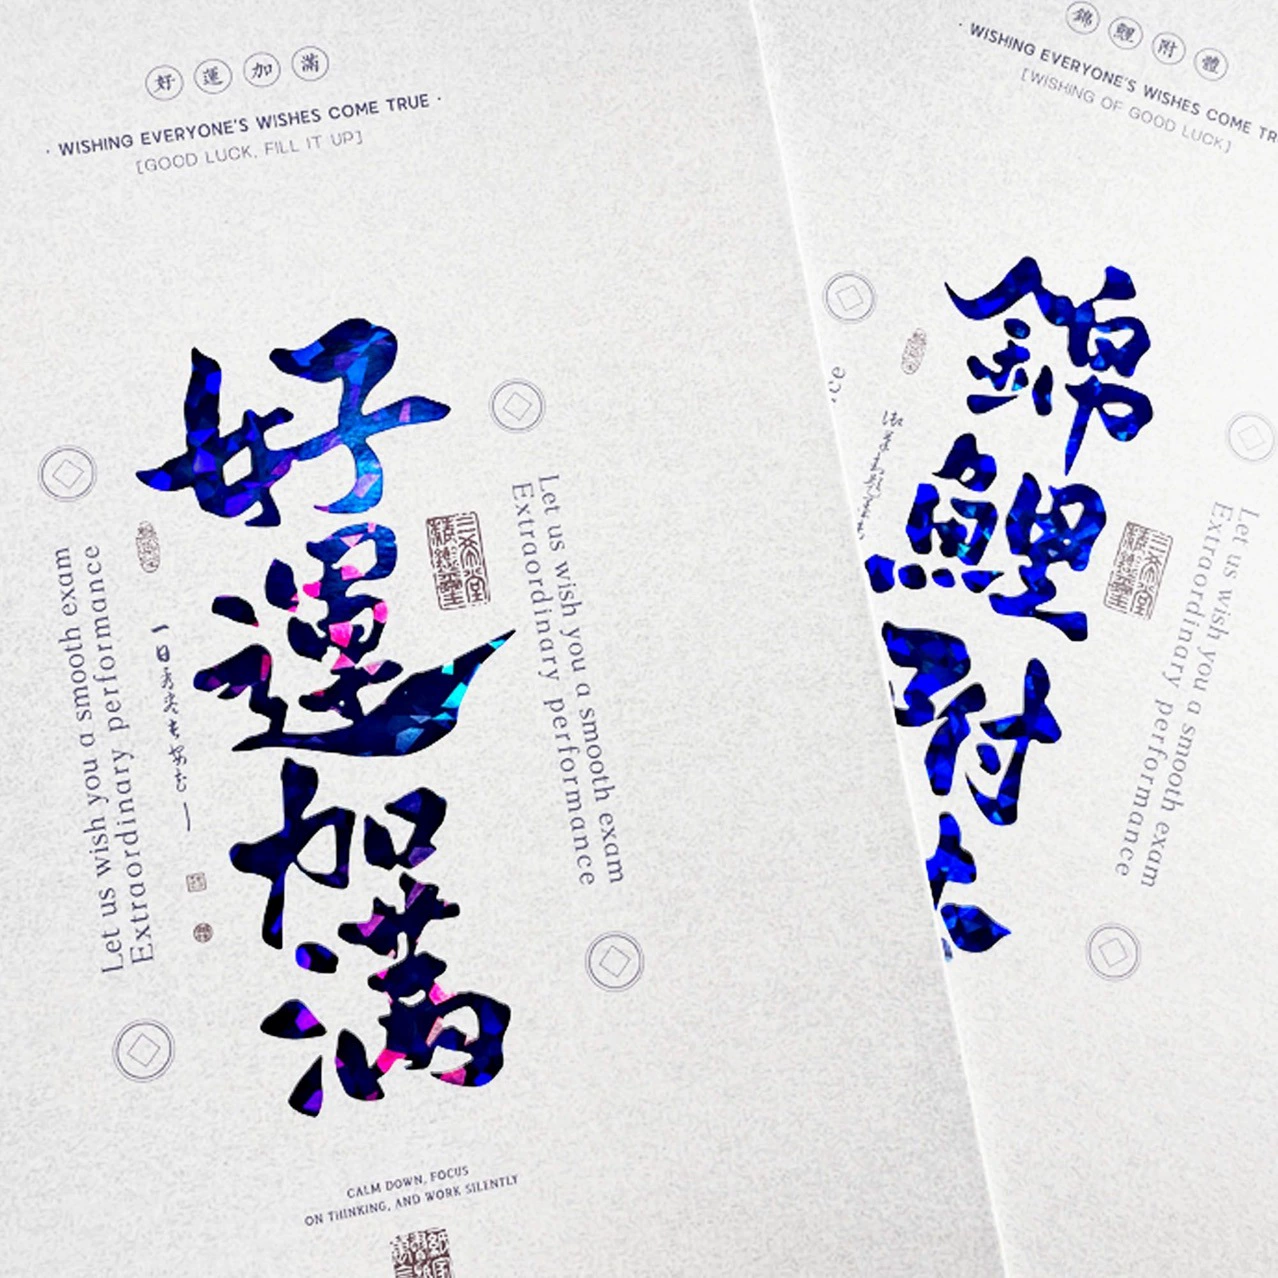 好 運 加 滿
· WISHING EVERYONE'S WISHES COME TRUE ·
[GOOD LUCK, FILL IT UP]
好運加滿
Let us wish you a smooth exam
Extraordinary performance
Let us wish you a smooth exam
Extraordinary performance
CALM DOWN, FOCUS
ON THINKING, AND WORK SILENTLY
錦 鯉 附 體
· WISHING EVERYONE'S WISHES COME TR
[WISHING OF GOOD LUCK]
錦鯉附
Let us wish you a smooth exam
Extraordinary performance